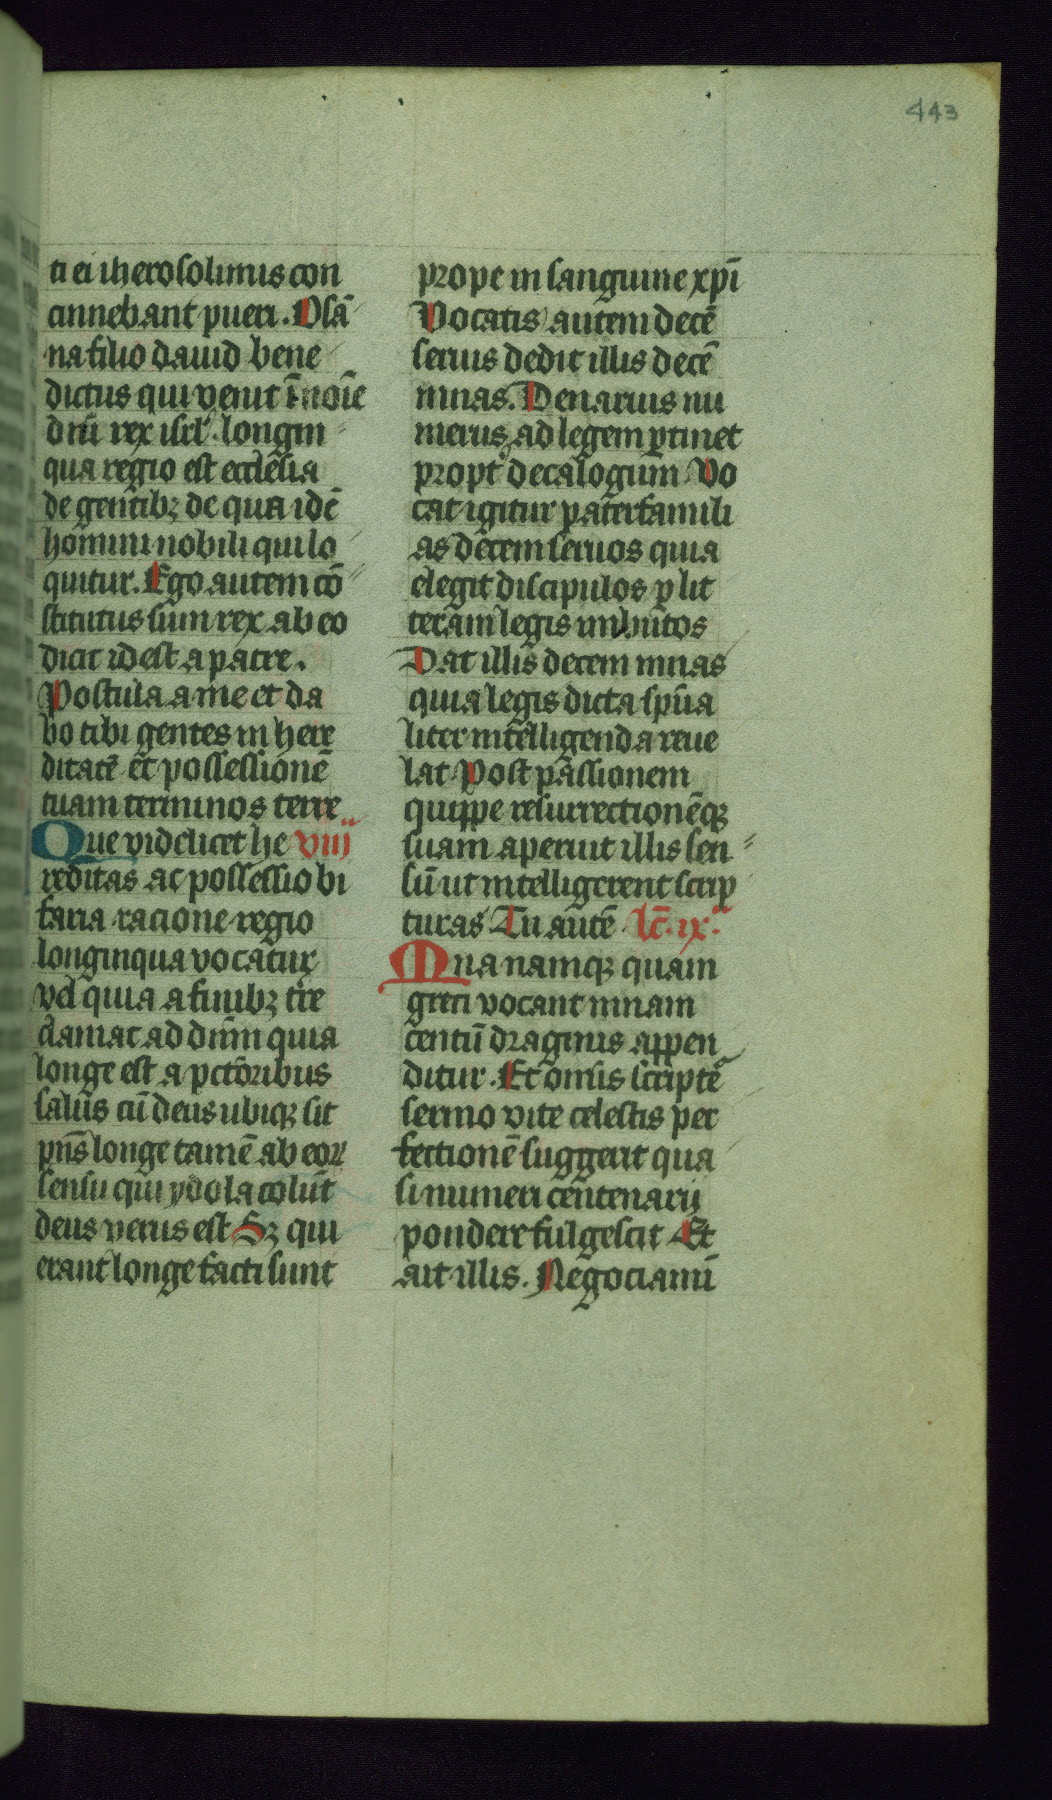 443
ti ei iherosolimis con
cinnebant pueri. Osā
na filio dauid bene
dictus qui venit ī noīe
dn̄i rex isrl̄. longin
qua regio est ecclesia
de gentibꝫ de qua idē
homini nobili qui lo
quitur. Ego autem cō
stitutus sum rex ab eo
dicit id est a patre.
Postula a me et da
bo tibi gentes in here
ditatē et possessionē
tuam terminos terre
Que videlicet he viii
reditas ac possessio bi
faria racione regio
longinqua vocatur
vel quia a finibꝫ tr̄e
clamat ad dn̄m quia
longe est a pctōribus
salus cū deus ubiqꝫ sit
pn̄s longe tamē ab eoꝝ
sensu qui ydola colūt
deus verus est Sꝫ qui
erant longe facti sunt
prope in sanguine xp̄i
Vocatis autem decē
seruis dedit illis decē
mnas. Denarius nu
merus ad legem ꝑtinet
propt̄ decalogum Vo
cat igitur paterfamili
as decem seruos quia
elegit discipulos ꝑ lit
teram legis imbutos
Dat illis decem mnas
quia legis dicta spūa
liter intelligenda reue
lat Post passionem
quippe resurrectionēqꝫ
suam aperuit illis sen
sū ut intelligerent scrip
turas Tu autē lc̄. ix.
Mna namqꝫ quam
greci vocant mnam
centū dragmis appen
ditur. Et omnis scriptē
sermo vite celestis per
fectionē suggerit qua
si numeri centenarij
pondere fulgescit Et
ait illis. Negociamī